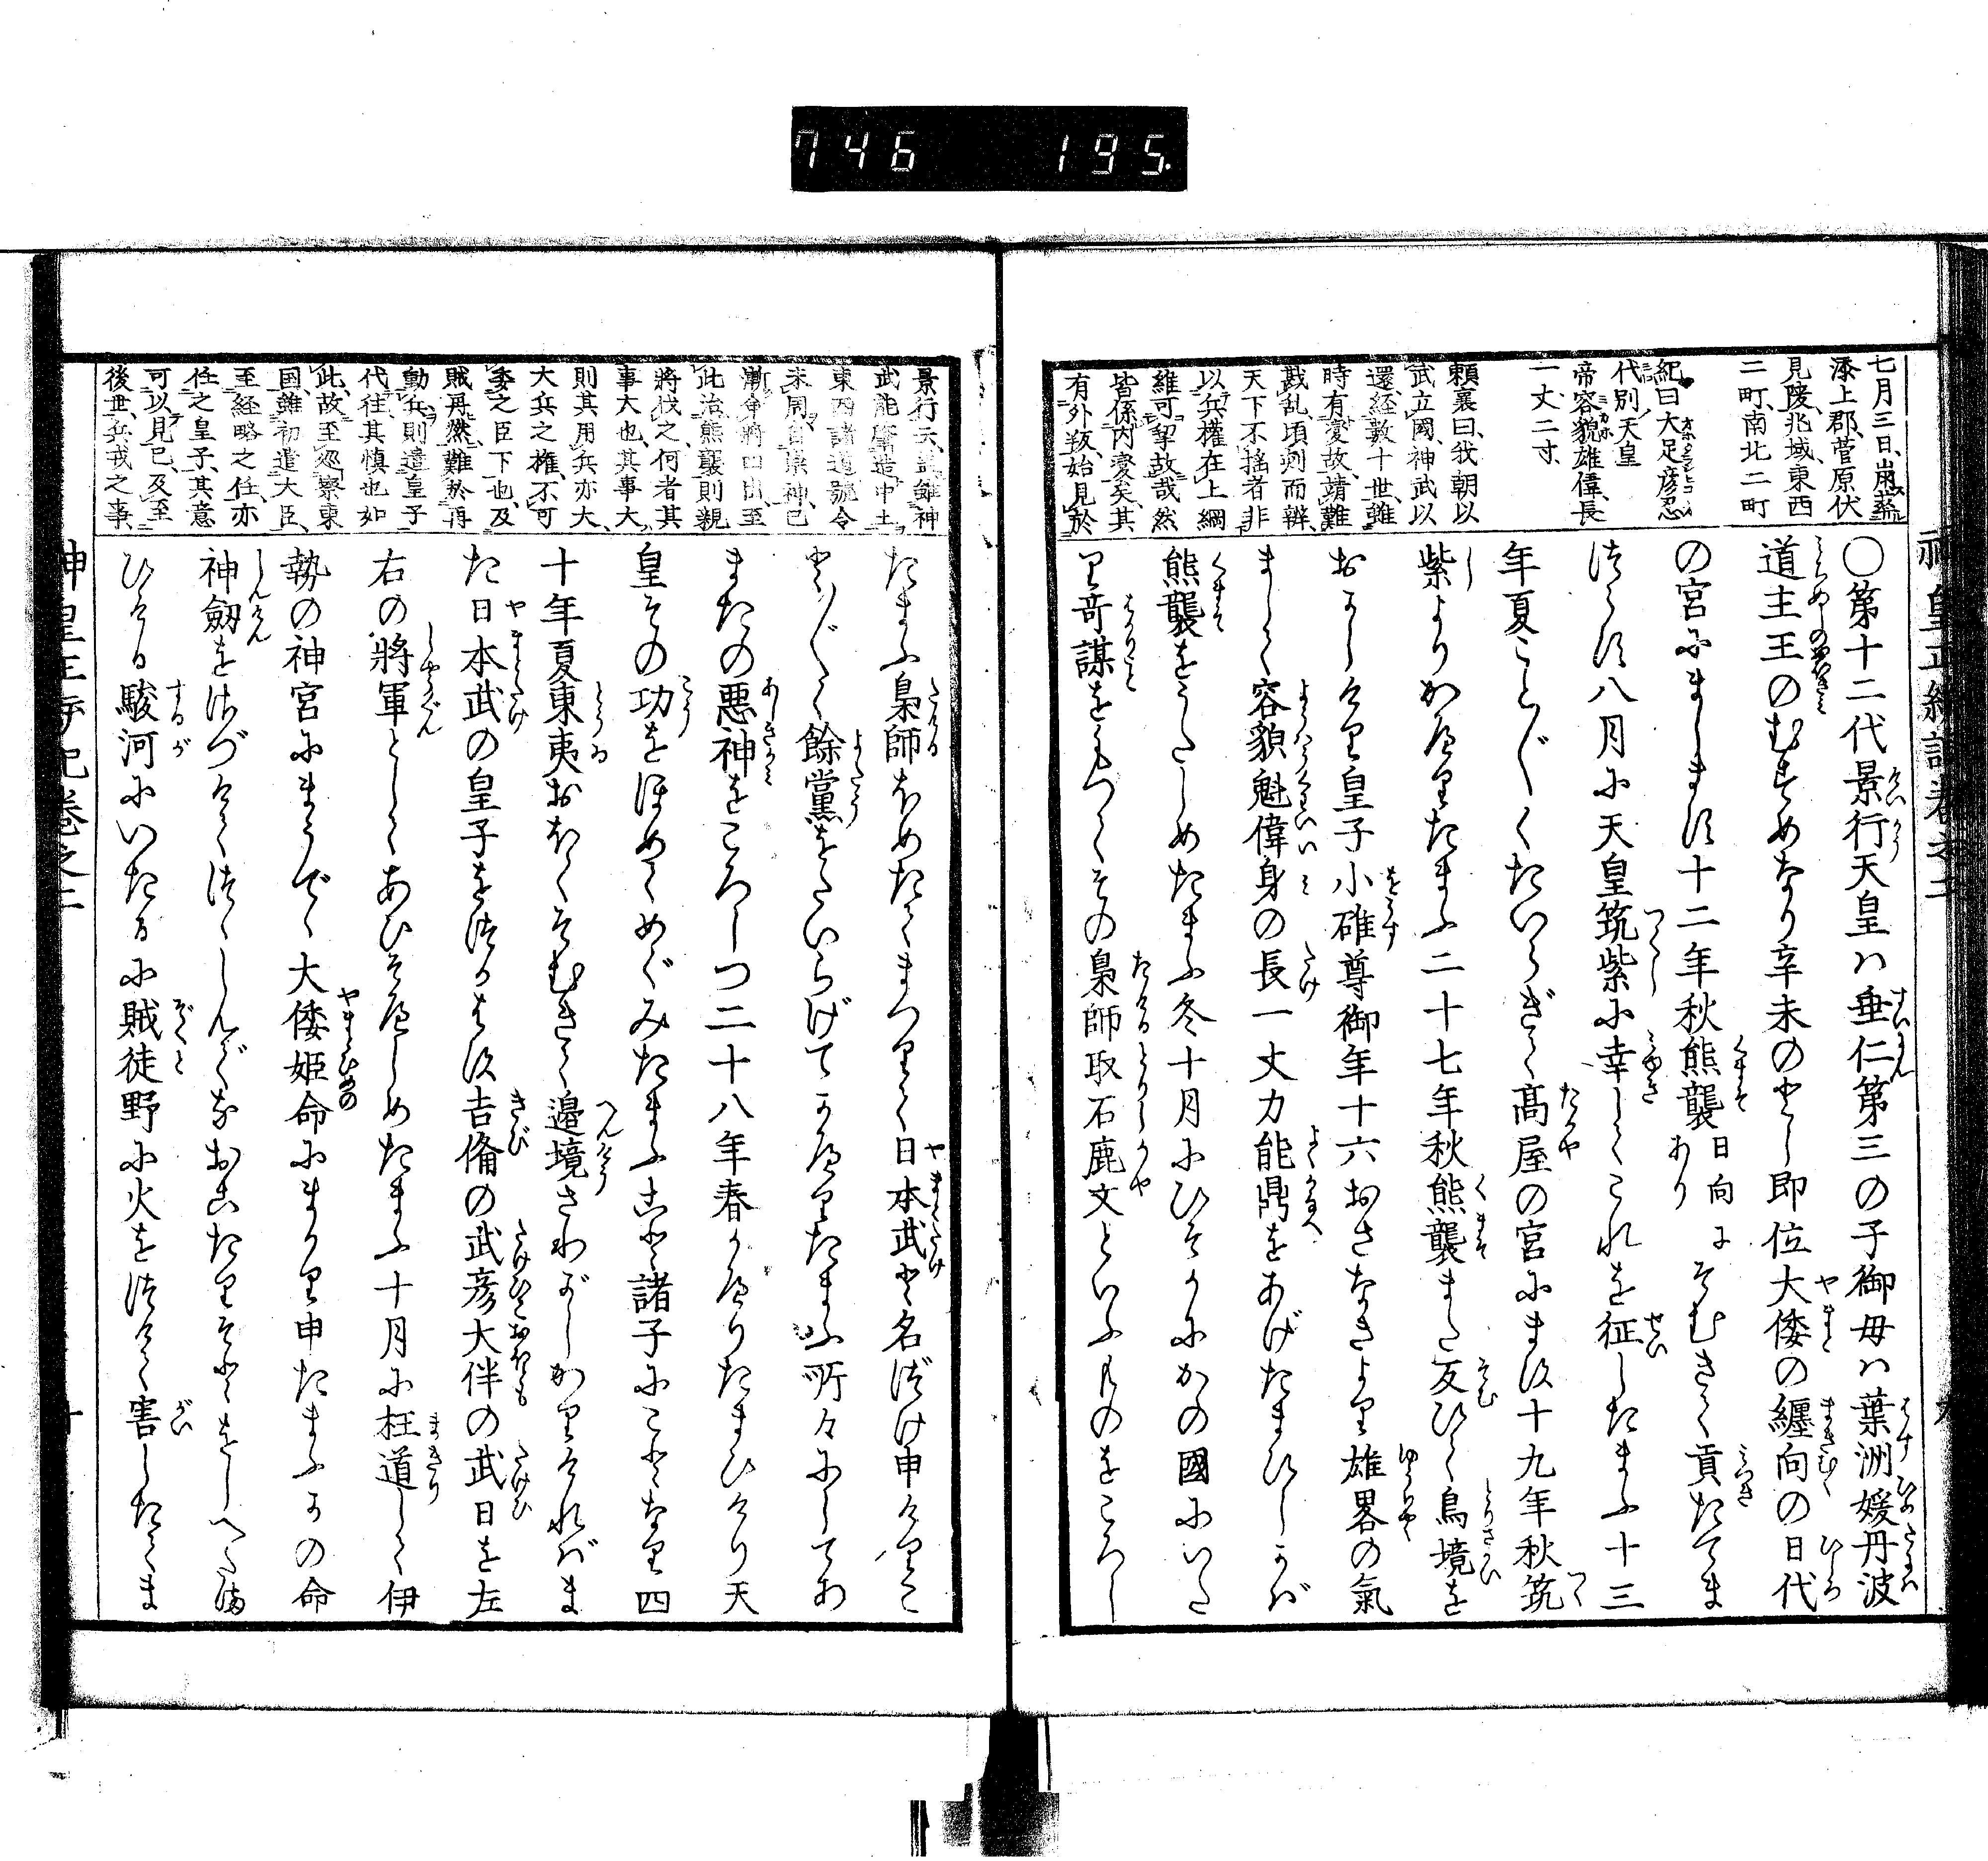 746 195.
七月三日、崩葬
添上郡、菅原伏
見陵、兆域、東西
二町、南北二町
紀曰大足彦忍
代別天皇
帝容貌雄偉、長
一丈二寸、
頼襄曰、我朝以
武立國、神武以
還、経数十世、雖
時有変故、靖難
戡乱頃刻而辨、
天下不揺者非
以兵權在上綱
維可挈故哉然
皆係内變矣、其
有外叛、始見於
〇第十二代景行天皇ハ垂仁第三の子御母ハ葉洲媛丹波
道主王のむすめなり辛未のとし即位大倭の纏向の日代
の宮にまします十二年秋熊襲日向にありそむきて貢たてま
つらず八月に天皇筑紫に幸してこれを征したまふ十三
年夏こと〴〵くたいらぎて高屋の宮にます十九年秋筑
紫よりかへりたまふ二十七年秋熊襲また反ひて鳥境を
おかしけり皇子小碓尊御年十六おさなきより雄畧の氣
まして容貌魁偉身の長一丈力能鼎をあげたまひしかば
熊襲をうたしめたまふ冬十月にひそかにかの國にいた
り奇謀をもつてその梟師取石鹿文といふものをころし
景行云、蓋雖神
武能肇造中土、
東西諸道號令
未周、自崇神、已
漸命將四出、至
此治熊襲則親
將伐之、何者其
事大也、其事大、
則其用兵亦大、
大兵之権、不可
委之臣下也、及
賊再然、難於再
動兵、則遣皇子
代往其慎也如
此、故至忽察東
国、雖初遣大臣、
至経略之任、亦
任之皇子、其意
可以見已、及至
後世、兵戎之事、
たまふ梟師ほめたてまつりて日本武と名づけ申けりこ
と〴〵く餘黨をたいらげてかへりたまふ所々にしてあ
またの悪神をころしつ二十八年春かへりたまひけり天
皇その功をほめてめぐみたまふこと諸子にことなり四
十年夏東夷おほくそむきて邉境さわがしかりければま
た日本武の皇子をつかはす吉備の武彦大伴の武日を左
右の將軍としてあひそへしめたまふ十月に枉道して伊
勢の神宮にまうでゝ大倭姫命にまかり申たまふかの命
神劔をさづけてつゝしんでなおこたりそとをしへたま
ひける駿河にいたるに賊徒野に火をつけて害したてま
神皇正統記巻之二